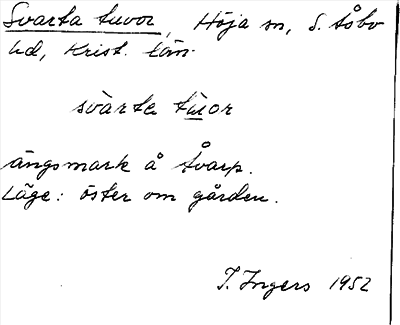 Svarta tuvor, Höja sn, S. Åsbo
hd, Krist. län.
svàrta tùor
ängsmark å Åvarp.
Läge: öster om gården.
I. Ingers 1952